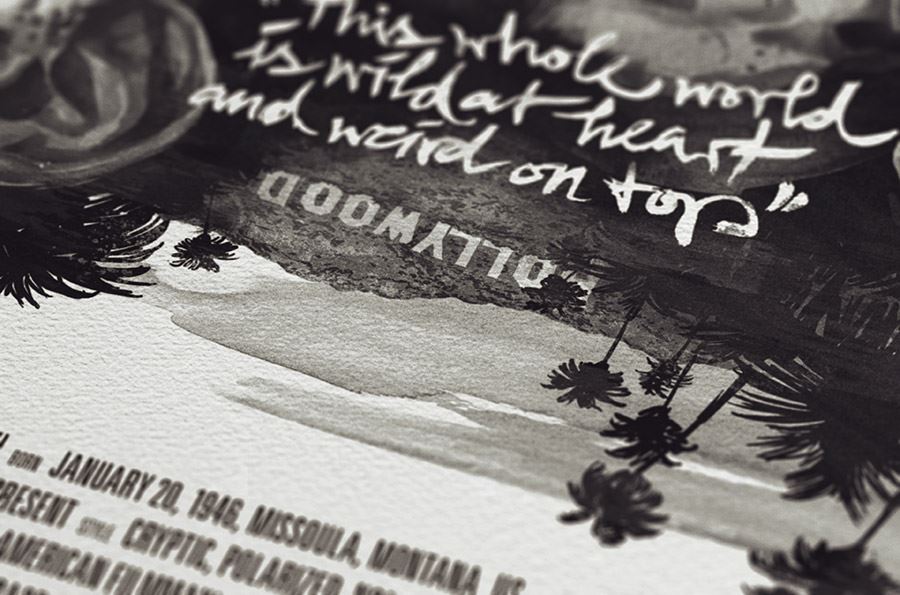 "This whole world
is wild at heart
and weird on top"
OLLYWOOD
BORN JANUARY 20, 1946, MISSOULA, MONTANA, US
PRESENT STYLE CRYPTIC, POLARIZED,
AMERICAN